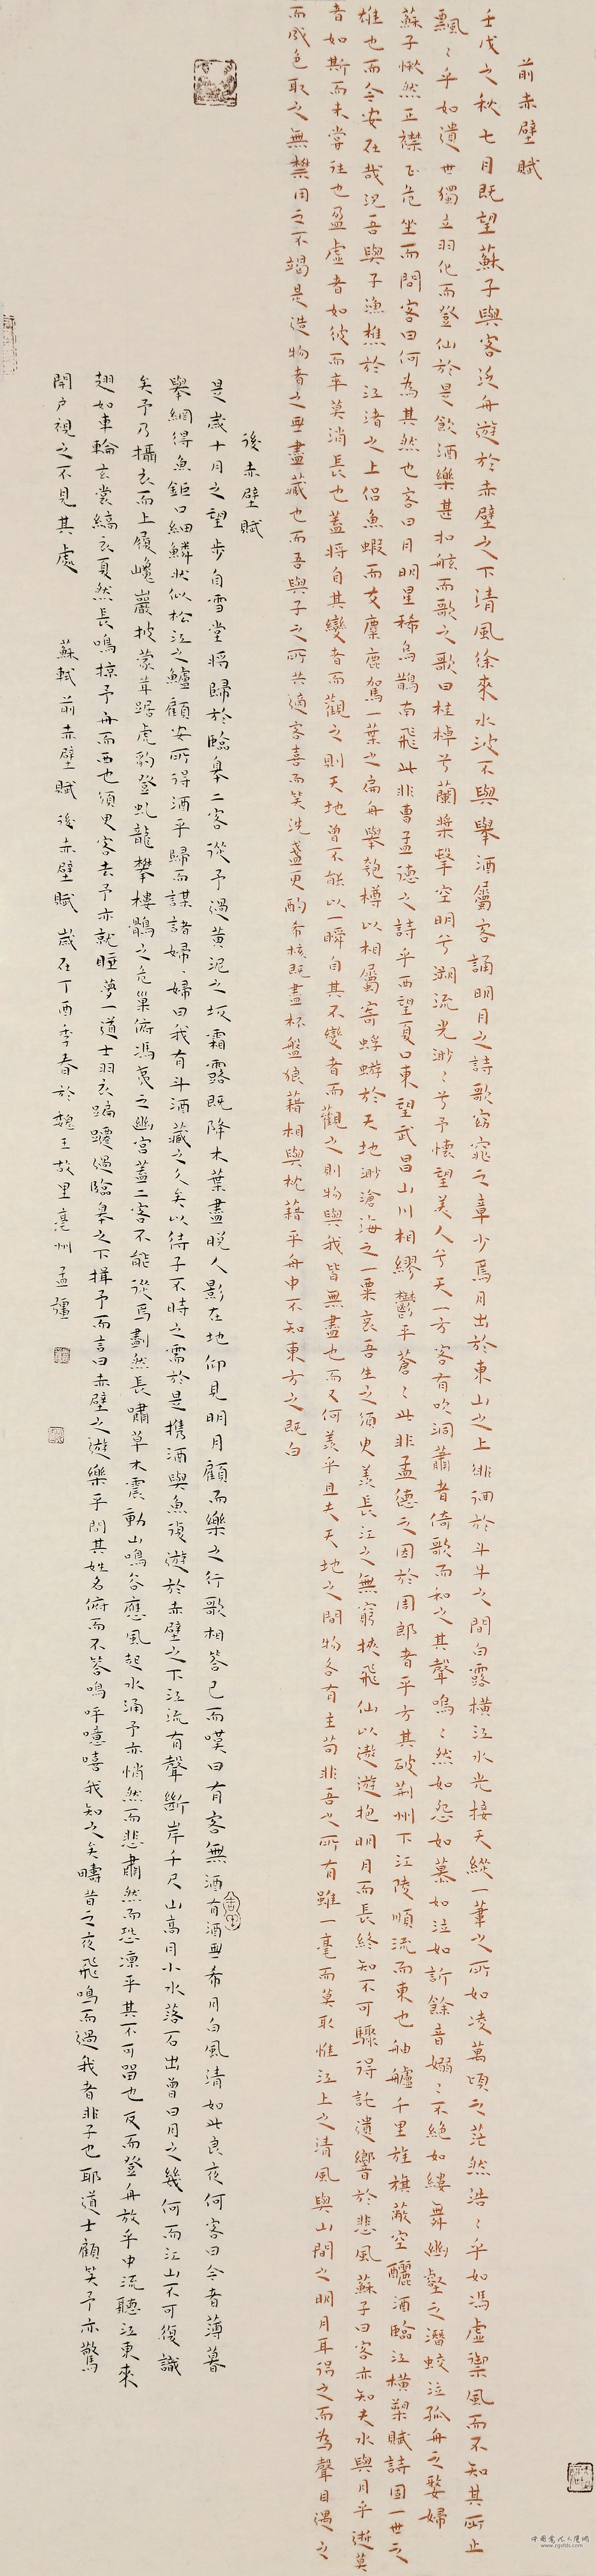 前赤壁賦
壬戌之秋七月既望蘇子與客泛舟遊於赤壁之下清風徐來水波不興舉酒屬客誦明月之詩歌窈窕之章少焉月出於東山之上徘徊於斗牛之間白露橫江水光接天縱一葦之所如凌萬頃之茫然浩〻乎如馮虛禦風而不知其所止
飄〻乎如遺世獨立羽化而登仙於是飲酒樂甚扣舷而歌之歌曰桂棹兮蘭槳擊空明兮溯流光渺〻兮予懷望美人兮天一方客有吹洞蕭者倚歌而和之其聲嗚〻然如怨如慕如泣如訴餘音嫋〻不絕如縷舞幽壑之潛蛟泣孤舟之嫠婦
蘇子愀然正襟危坐而問客曰何為其然也客曰月明星稀烏鵲南飛此非曹孟德之詩乎西望夏口東望武昌山川相繆鬱乎蒼〻此非孟德之困於周郎者乎方其破荊州下江陵順流而東也舳艫千里旌旗蔽空釃酒臨江橫槊賦詩固一世之
雄也而今安在哉況吾與子漁樵於江渚之上侶魚蝦而友麋鹿駕一葉之扁舟舉匏樽以相屬寄蜉蝣於天地渺滄海之一粟哀吾生之須臾羨長江之無窮挾飛仙以遨遊抱明月而長終知不可驟得託遺響於悲風蘇子曰客亦知夫水與月乎逝莫
者如斯而未嘗往也盈虛者如彼而卒莫消長也蓋將自其變者而觀之則天地曾不能以一瞬自其不變者而觀之則物與我皆無盡也而又何羨乎且夫天地之間物各有主苟非吾之所有雖一毫而莫取惟江上之清風與山間之明月耳得之而為聲目遇之
而成色取之無禁用之不竭是造物者之無盡藏也而吾與子之所共適客喜而笑洗盞更酌肴核既盡杯盤狼藉相與枕藉乎舟中不知東方之既白
後赤壁賦
是歲十月之望步自雪堂將歸於臨皋二客從予過黃泥之坂霜露既降木葉盡脫人影在地仰見明月顧而樂之行歌相答已而嘆曰有客無酒有酒無肴月白風清如此良夜何客曰今者薄暮
舉網得魚鉅口細鱗狀似松江之鱸顧安所得酒乎歸而謀諸婦〻曰我有斗酒藏之久矣以待子不時之需於是攜酒與魚復遊於赤壁之下江流有聲斷岸千尺山高月小水落石出曾日月之幾何而江山不可復識
矣予乃攝衣而上履巉巖披蒙茸踞虎豹登虬龍攀棲鶻之危巢俯馮夷之幽宮蓋二客不能從焉劃然長嘯草木震動山鳴谷應風起水涌予亦悄然而悲肅然而恐凜乎其不可留也反而登舟放乎中流聽江東來
翅如車輪玄裳縞衣戛然長鳴掠予舟而西也須臾客去予亦就睡夢一道士羽衣蹁躚過臨皋之下揖予而言曰赤壁之遊樂乎問其姓名俯而不答嗚呼噫嘻我知之矣疇昔之夜飛鳴而過我者非子也耶道士顧笑予亦驚
開戶視之不見其處 蘇軾前赤壁賦後赤壁賦 歲在丁酉季春於魏王故里亳州孟疆
中国当代人徵网
www.zgsfds.com